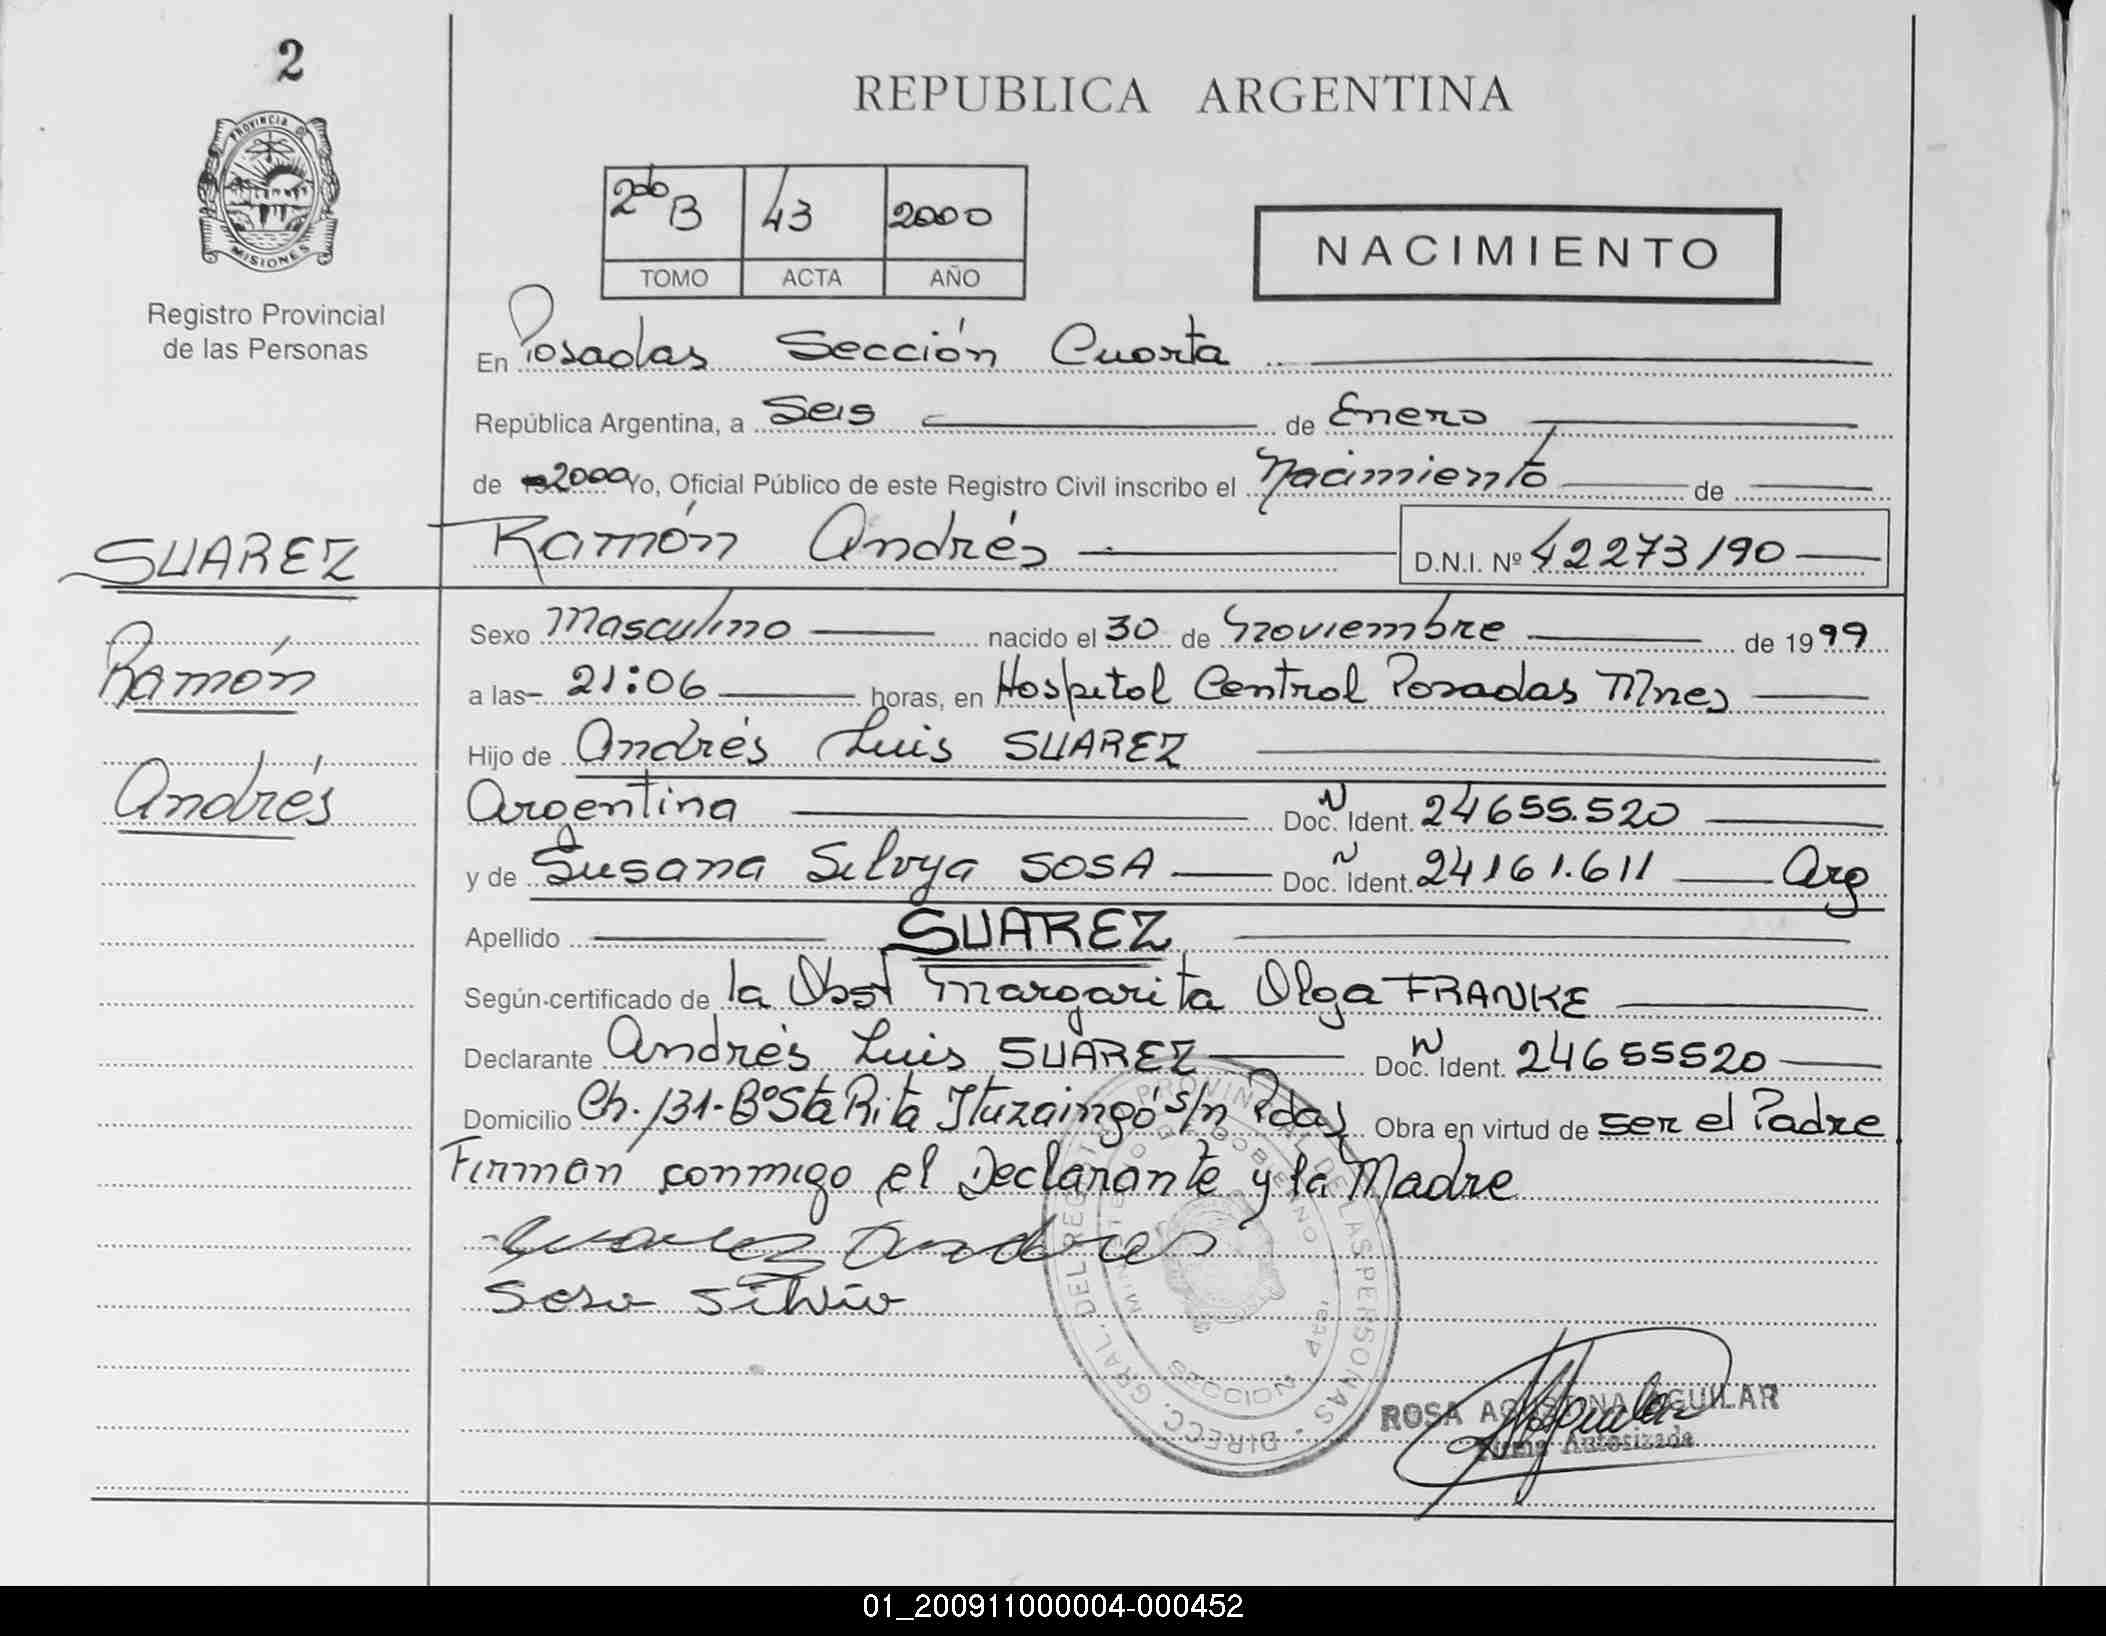 2
PROVINCIA DE
MISIONES
Registro Provincial
de las Personas
REPUBLICA ARGENTINA
2do B 43 2000
TOMO ACTA AÑO
NACIMIENTO
En Posadas Sección Cuarta
República Argentina, a Seis de Enero
de 2000 Yo, Oficial Público de este Registro Civil inscribo el Nacimiento de
SUAREZ
Ramón
Andrés
Ramón Andrés D.N.I. Nº 42273190
Sexo Masculino nacido el 30 de Noviembre de 1999
a las 21:06 horas, en Hospital Central Posadas Mnes
Hijo de Andrés Luis SUAREZ
Argentina Doc. N Ident. 24655.520
y de Susana Silvya SOSA Doc. N Ident. 24161.611 Arg
Apellido SUAREZ
Según certificado de la Obst Margarita Olga FRANKE
Declarante Andrés Luis SUAREZ Doc. N Ident. 24655520
Domicilio Ch. 131-Bº Sta Rita Ituzaingó s/n Pdas Obra en virtud de ser el Padre
Firman conmigo el Declarante y la Madre
Suarez Andres
Sosa Silvia
DIRECC. GRAL. DEL REGISTRO PROVINCIAL DE LAS PERSONAS
MINISTERIO DE GOBIERNO
SECCION 4ta.
ROSA AGUSTINA AGUILAR
Firma Autorizada
01_200911000004-000452